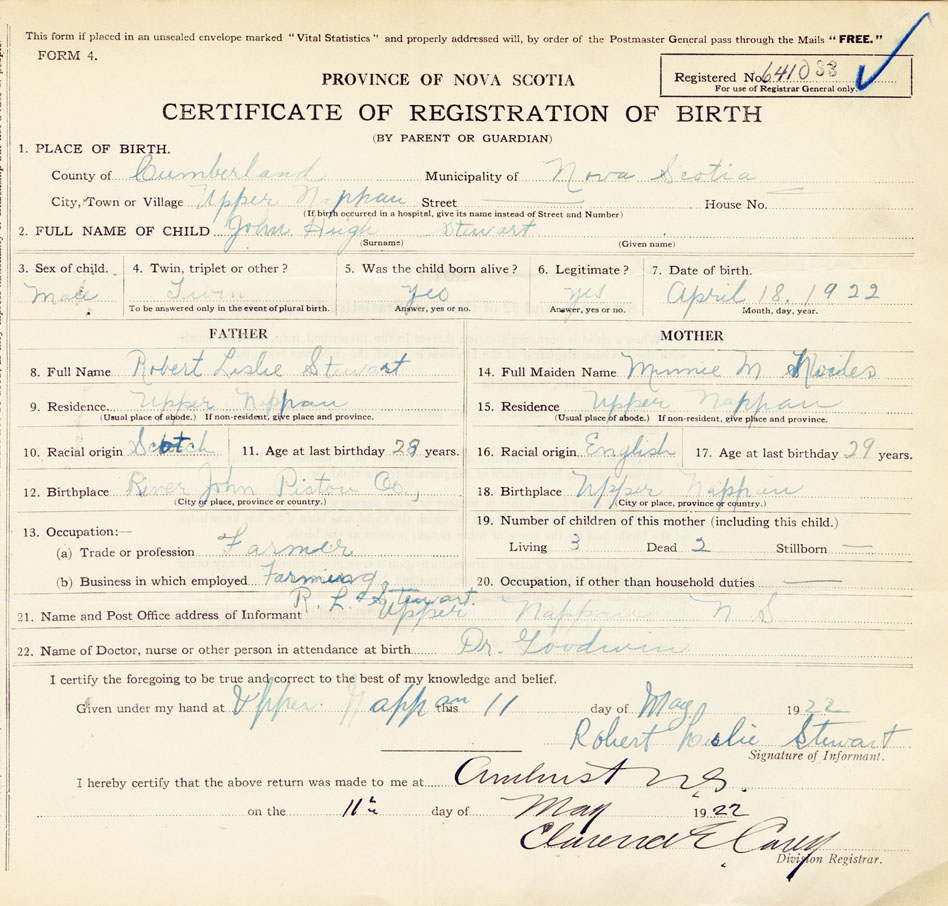 This form if placed in an unsealed envelope marked "Vital Statistics" and properly addressed will, by order of the Postmaster General pass through the Mails "FREE."
FORM 4.
PROVINCE OF NOVA SCOTIA
Registered No. 641033
For use of Registrar General only.
CERTIFICATE OF REGISTRATION OF BIRTH
(BY PARENT OR GUARDIAN)
1. PLACE OF BIRTH.
County of Cumberland Municipality of Nova Scotia
City, Town or Village Upper Nappan Street House No.
(If birth occurred in a hospital, give its name instead of Street and Number)
2. FULL NAME OF CHILD John Hugh Stewart
(Surname) (Given name)
3. Sex of child. 4. Twin, triplet or other? 5. Was the child born alive? 6. Legitimate? 7. Date of birth.
Male Twin yes yes April 18. 1922
To be answered only in the event of plural birth. Answer, yes or no. Answer, yes or no. Month, day, year.
FATHER MOTHER
8. Full Name Robert Leslie Stewart 14. Full Maiden Name Minnie M
9. Residence Upper Nappan 15. Residence Upper Nappan
(Usual place of abode.) If non-resident, give place and province. (Usual place of abode.) If non-resident, give place and province.
10. Racial origin Scotch 11. Age at last birthday years. 16. Racial origin English 17. Age at last birthday 29 years.
12. Birthplace River John Pictou Co., 18. Birthplace Upper Nappan
(City or place, province or country.) (City or place, province or country.)
13. Occupation:— 19. Number of children of this mother (including this child.)
(a) Trade or profession Farmer Living 3 Dead 2 Stillborn —
(b) Business in which employed Farming 20. Occupation, if other than household duties —
R. L. Stewart.
21. Name and Post Office address of Informant Upper Nappan N S
22. Name of Doctor, nurse or other person in attendance at birth Dr. Goodwin
I certify the foregoing to be true and correct to the best of my knowledge and belief.
Given under my hand at Upper Nappan this 11 day of May 1922
Robert Leslie Stewart
Signature of Informant.
I hereby certify that the above return was made to me at Amherst N.S.
on the 11th day of May 1922
Clarence E Carey
Division Registrar.